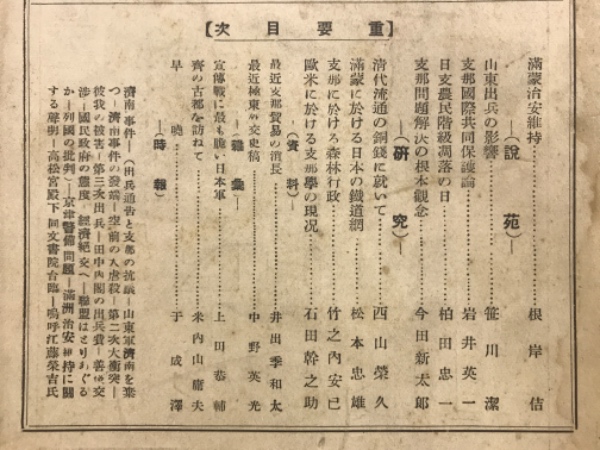 【重要目次】
滿蒙治安維持……根岸佶
―(說苑)―
山東出兵の影響……笹川潔
支那國際共同保護論……岩井英一
日支農民階級凋落の日……柏田忠一
支那問題解決の根本觀念……今田新太郎
―(研究)―
清代流通の銅錢に就いて……西山榮久
滿蒙に於ける日本の鐵道網……松本忠雄
支那に於ける森林行政……竹之內安巳
歐米に於ける支那學の現況……石田幹之助
―(資料)―
最近支那貿易の消長……井出季和太
最近極東外交史稿……中野英光
―(雜彙)―
宣傳戰に最も脆い日本軍……上田恭輔
齊の古都を訪ねて……米內山庸夫
早曉……于成澤
―(時報)―
濟南事件―(出兵通告と支那の抗議―山東軍濟南を棄
つ―濟南事件の發端―空前の大虐殺―第二次大衝突―
彼我の被害―第三次出兵―田中內閣の出兵費―善後交
涉―國民政府の態度、經濟絕交へ―聯盟はどりあぐる
か―列國の批判)―京津警備問題―滿洲治安維持に關
する聲明―高松宮殿下同文書院台臨―嗚呼江藤榮吉氏